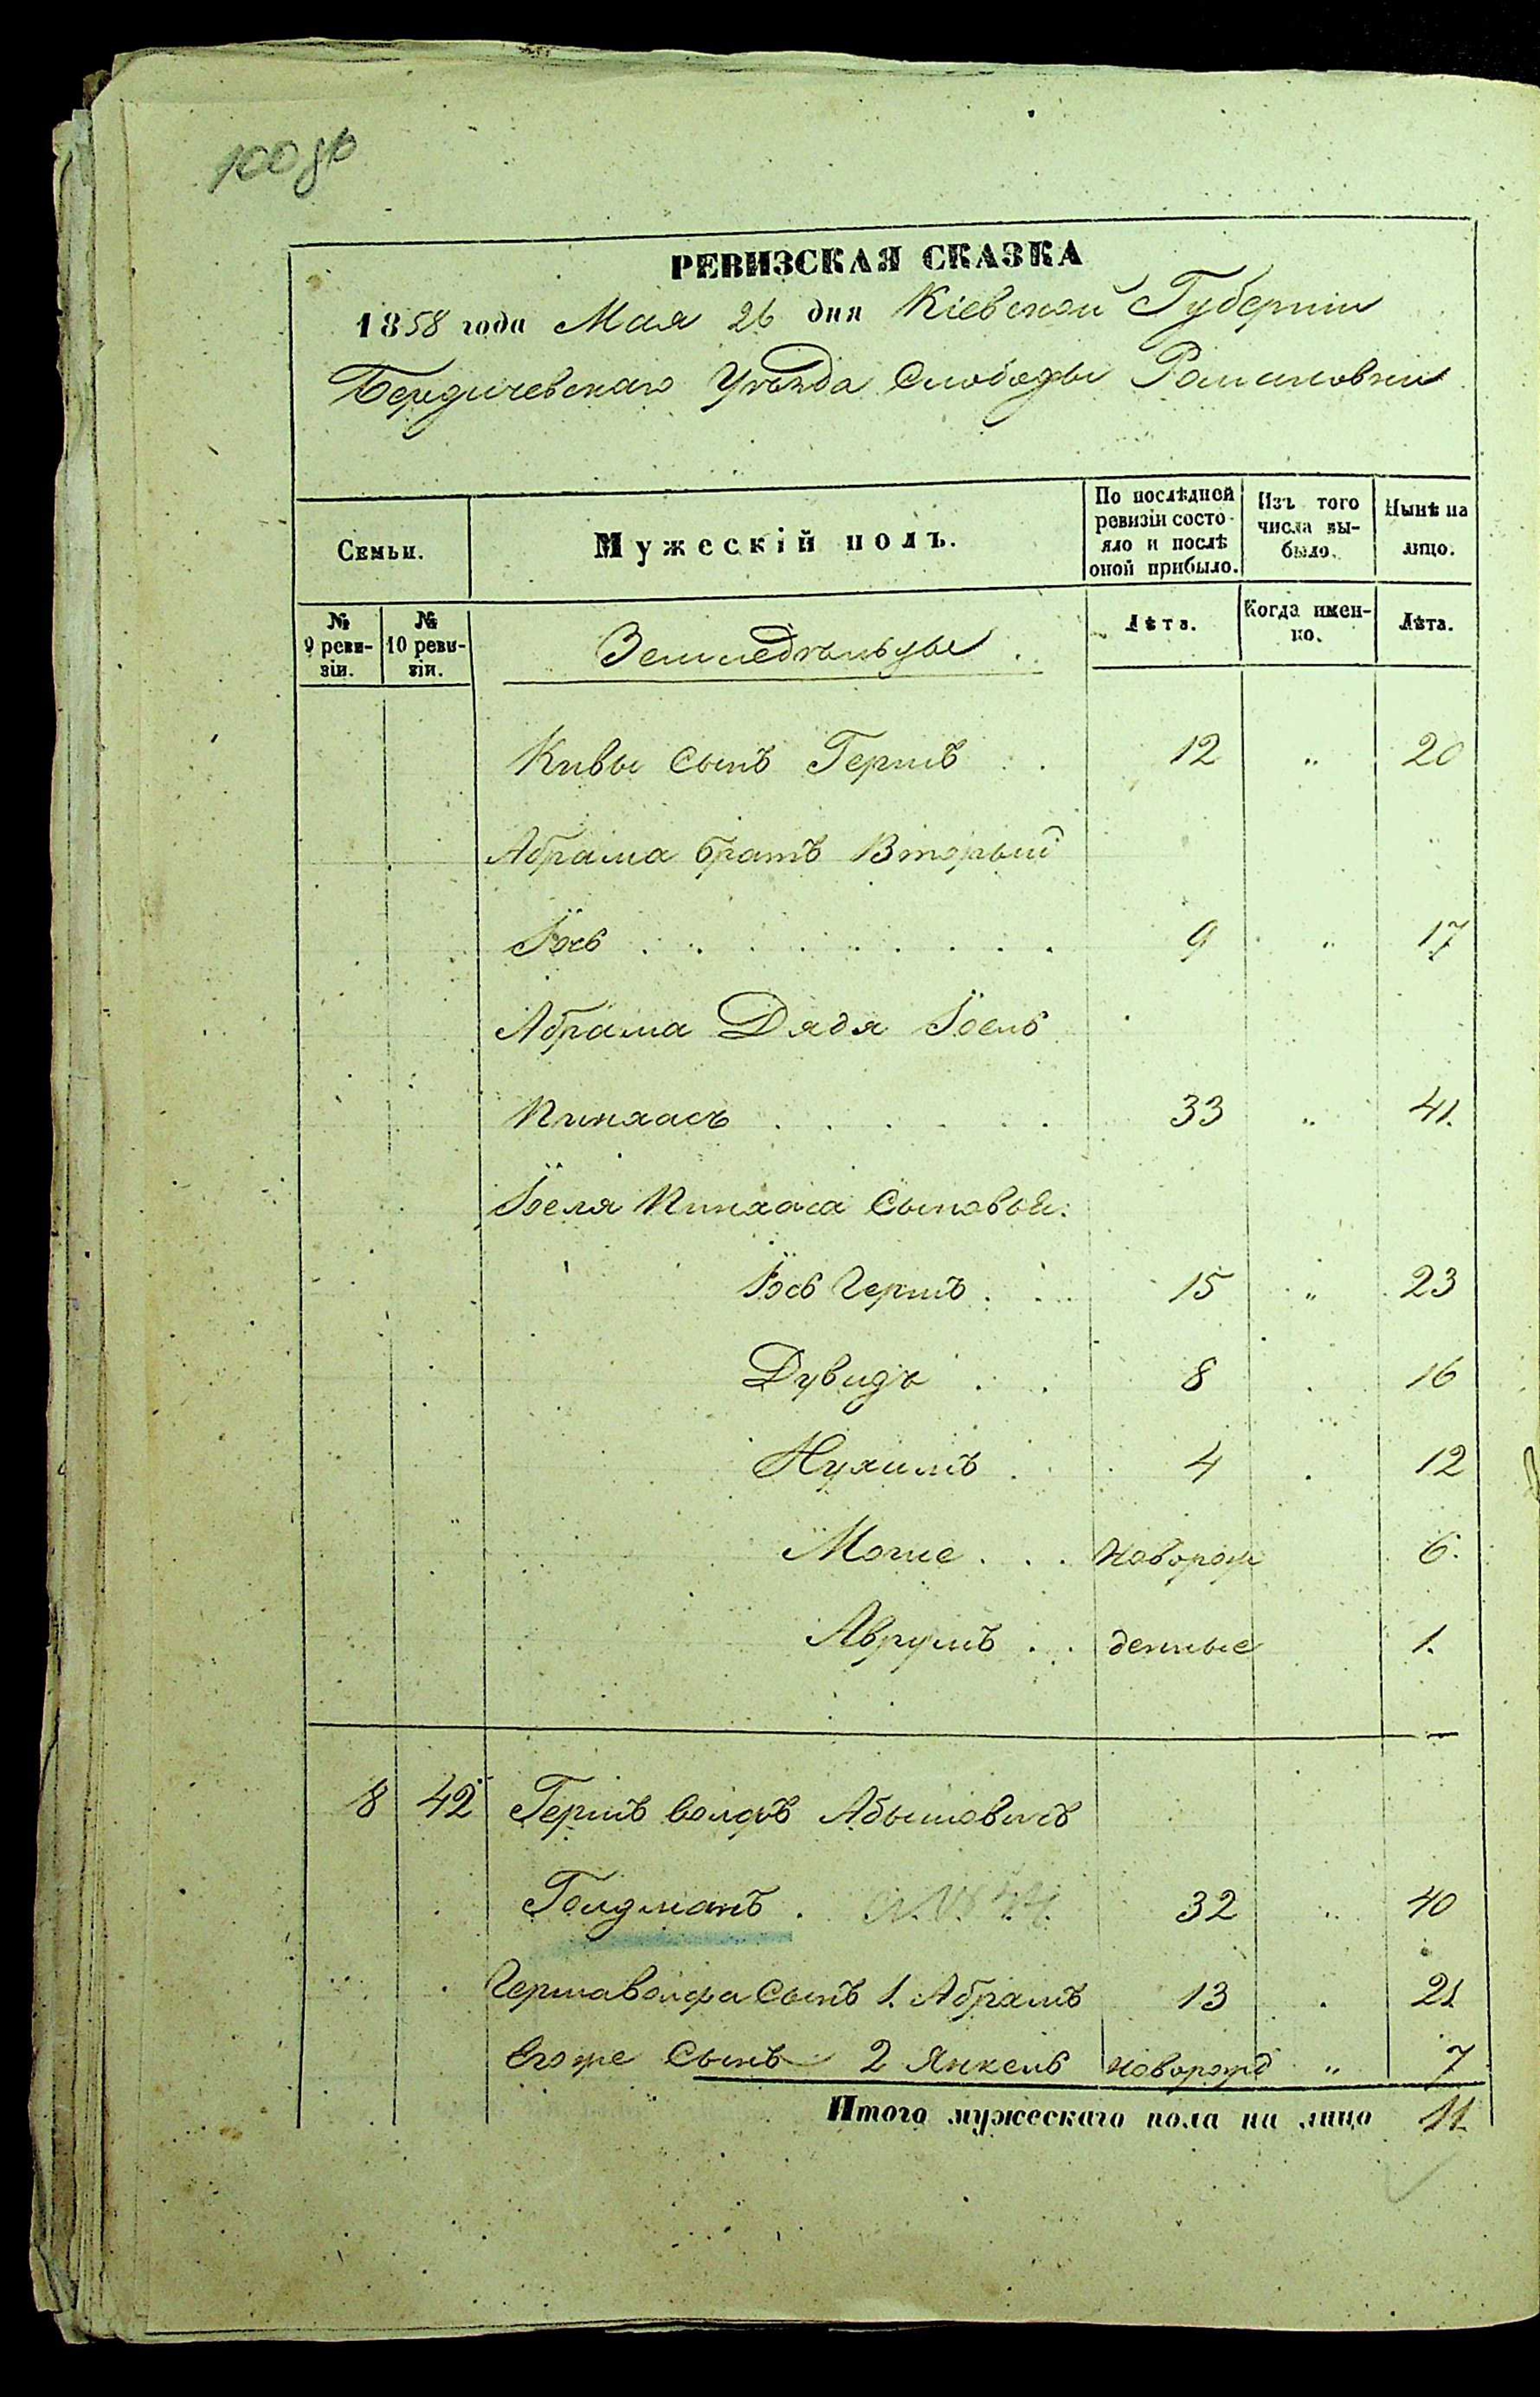 100 об
РЕВИЗСКАЯ СКАЗКА
1858 года Мая 26 дня Кіевской Губерніи
Бердичевскаго Уѣзда Слободы Романовки
Семьи. Мужескій полъ. По послѣдней ревизіи состояло и послѣ оной прибыло. Изъ того числа выбыло. Нынѣ на лицо.
№ 9 ревизіи. № 10 ревизіи. Земледѣльцы. Лѣта. Когда именно. Лѣта.
Кивы сынъ Гершъ . . 12 " 20
Абрама братъ Вторый
Іось . . . . . . . . 9 " 17
Абрама Дядя Іоель
Пинхасъ . . . . . . 33 " 41.
Іоеля Пинхаса Сыновья:
Іось Гершъ . . . 15 " 23
Дувидъ . . 8 . 16
Нухимъ . . 4 . 12
Моше . . . Новорож 6.
Аврумъ . . денные 1.
8 42 Гершъ Волфъ Абышовичъ
Голдманъ . 32 " 40
Гершаволфа Сынъ 1. Абрамъ 13 . 21
Его же Сынъ 2 Янкель новорожд " 7
Итого мужескаго пола на лицо 11.